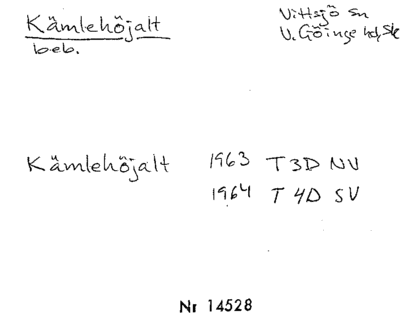 Kämlehöjalt
beb.
Vittsjö sn
V. Göinge hd, Sk
Kämlehöjalt 1963 T 3D NV
1964 T 4D SV
Nr 14528